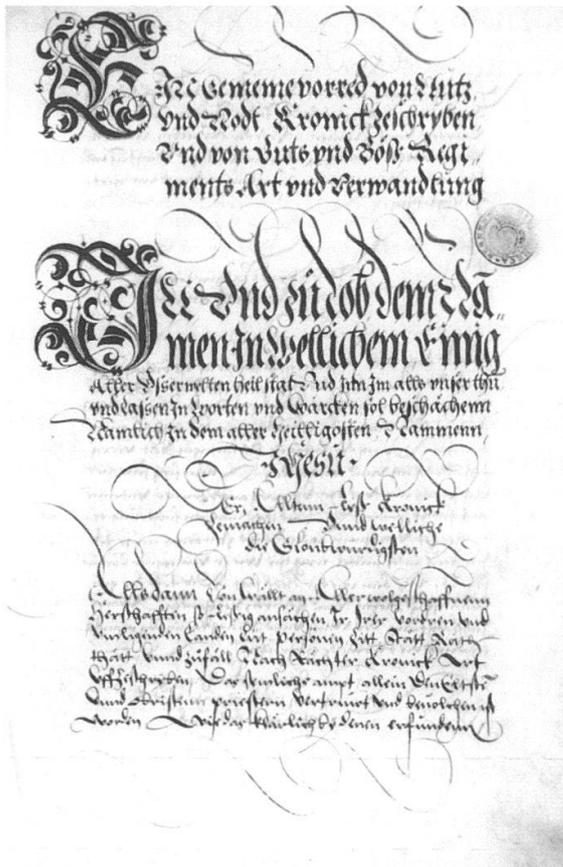 EIN Gemeine vorred von Nutz
vnd Nodt Kronick zeschryben
Vnd von Guts vnd Böss Regi„
ments Art vnd Verwandlung
IN Vnd zů Lob dem Na„
men In wellichem Einig
Aller Vsserwelten heil stat Vnd Inn Im alls vnser thů
vnd lassen In worten vnd wärcken sol beschächenn
Namlich zu dem aller heilligosten Nammenn
Jhesu.
Er, Elltlnn Erst Kronick
gemachen Vnnd welliche
die Gloubwurdigsten
Alls dann Von wällt an Aller wolgeschaffnenn
Herschafften flyssig ansächen Ir Irer vordren Vnd
vmligenden Landen Lüt personen Zitt Statt Rath
thätt vnnd zůfäll Nach Rächter Kronick Art
vffzeschryben Das semliche ampt allein den Eltstē
vnnd obristenn priestern vertruwt Vnd beuolchen ist
worden Wie das klärlich by denen erfundenn